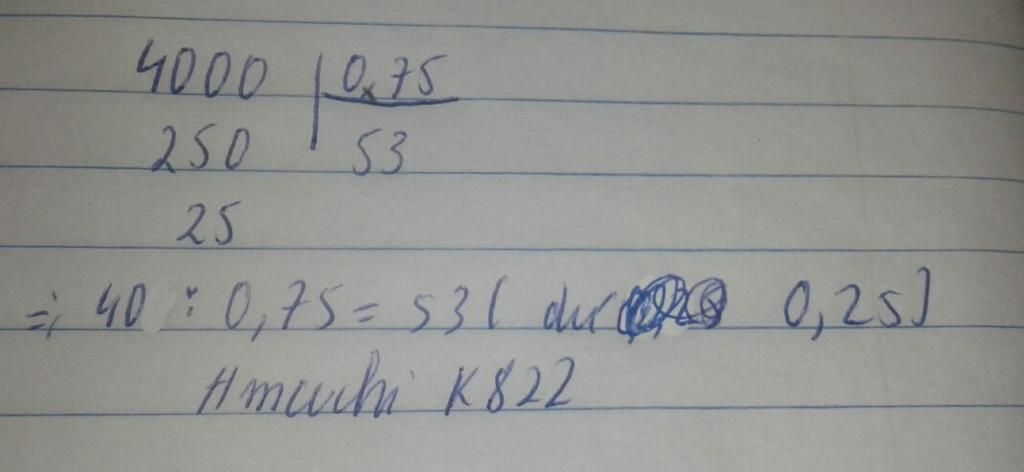 4000 0,75
250 53
25
=> 40 : 0,75 = 53 ( dư 0,25)
K822